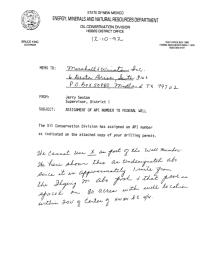 STATE OF NEW MEXICO
ENERGY, MINERALS AND NATURAL RESOURCES DEPARTMENT
OIL CONSERVATION DIVISION
HOBBS DISTRICT OFFICE
12-10-92
BRUCE KING
GOVERNOR
POST OFFICE BOX 1980
HOBBS, NEW MEXICO
MEMO TO: Marshall & Winston Inc.
6 Desta Drive, Suite
P.O. Box 50880 Midland TX 79702
FROM:
Jerry Sexton
Supervisor, District I
SUBJECT: ASSIGNMENT OF API NUMBER TO FEDERAL WELL
The Oil Conservation Division has assigned an API number
as indicated on the attached copy of your drilling permit.
We cannot use X as part of the Well Number
We have shown this as Undesignated Abo
since it is approximately 1 mile from
the Abo pool & that pool is
spaced on 80 acres with well location
within 200' of Center of